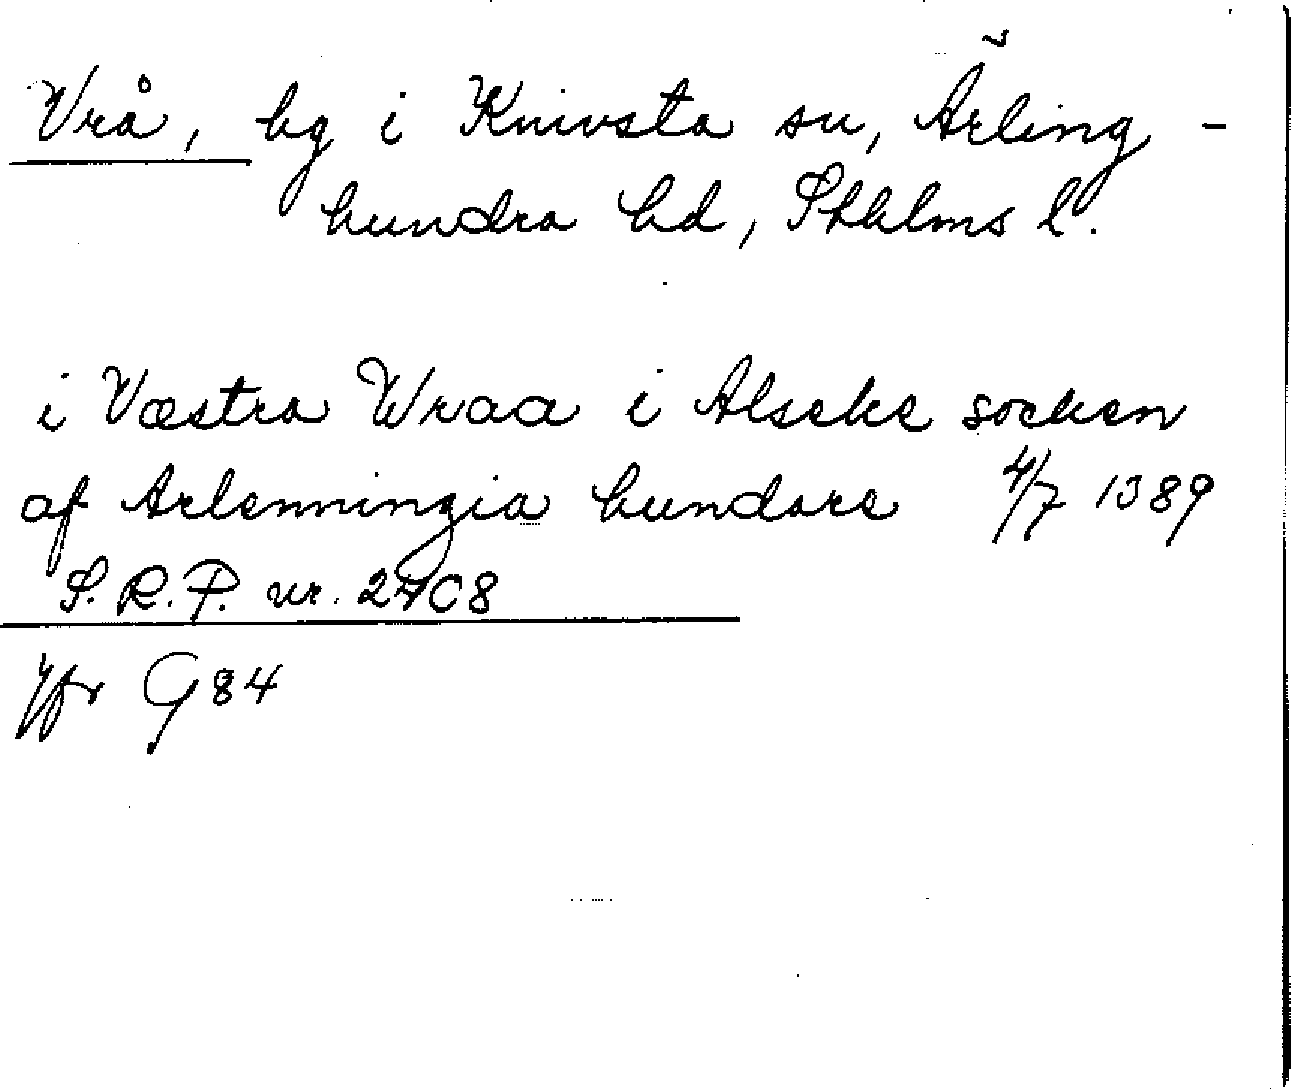 Vrå, by i Knivsta sn, Ärling-
hundra hd, Sthlms l.
i Væstra Wraa i Alseke socken
af Arlenningia hundare 4/7 1389
S.R.P. nr. 2408
Jfr G84